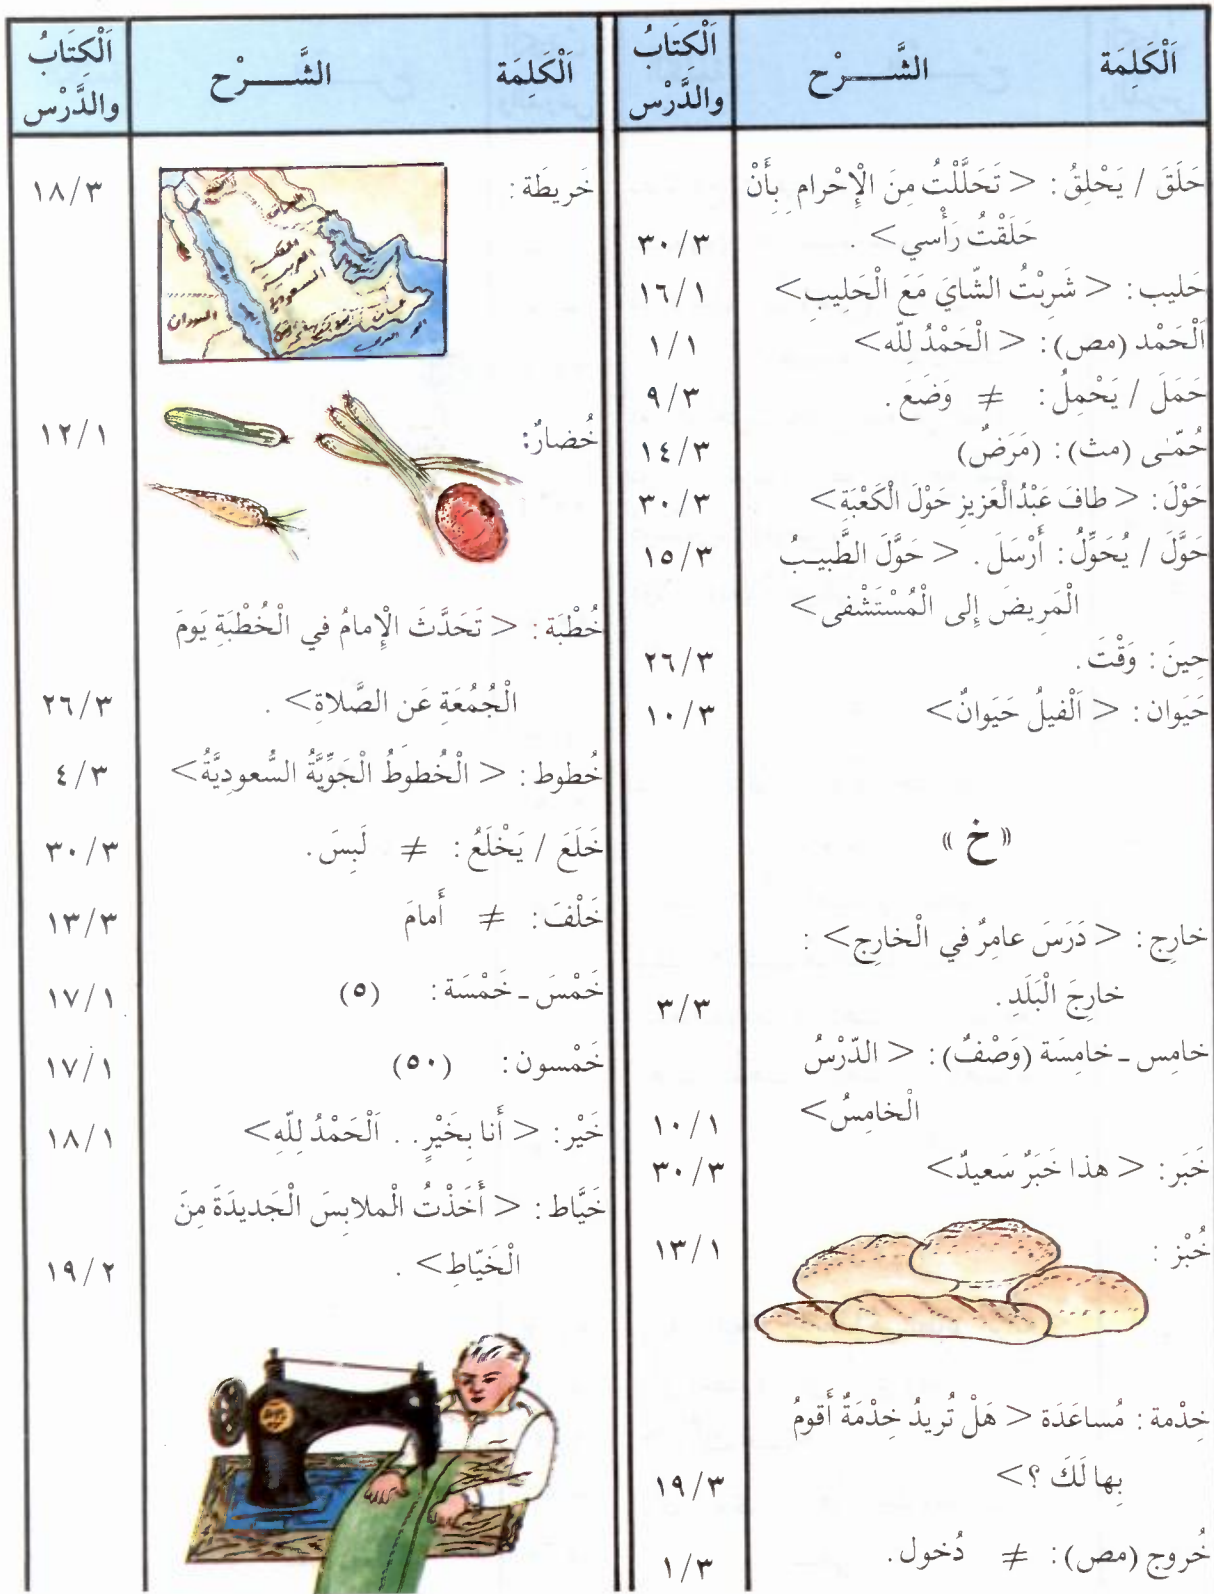 اَلْكَلِمَة الشَّـــرْح اَلْكِتَابُ والدَّرْس
حَلَقَ / يَحْلِقُ : < تَحَلَّلْتُ مِنَ الْإِحْرامِ بِأَنْ
حَلَقْتُ رَأْسي> . ٣٠/٣
حَليب : < شَرِبْتُ الشّايَ مَعَ الْحَلِيبِ> ١٦/١
اَلْحَمْد (مص) : < الْحَمْدُ لِلّه> ١/١
حَمَلَ / يَحْمِلُ : ≠ وَضَعَ . ٩/٣
حُمّى (مث) : (مَرَضٌ) ١٤/٣
حَوْلَ : < طافَ عَبْدُالْعَزيزِ حَوْلَ الْكَعْبَةِ> ٣٠/٣
حَوَّلَ / يُحَوِّلُ : أَرْسَلَ . < حَوَّلَ الطَّبيبُ ١٥/٣
الْمَرِيضَ إِلى الْمُسْتَشْفى>
حِينَ : وَقْتَ . ٢٦/٣
حَيَوان : < اَلْفيلُ حَيَوانٌ> ١٠/٣
«خ»
خارِج : < دَرَسَ عامِرٌ في الْخارِج> :
خارِجَ الْبَلَدِ . ٣/٣
خامِس ـ خامِسَة (وَصْفٌ) : < الدّرْسُ
الْخامِسُ> ١٠/١
خَبَر : < هذا خَبَرٌ سَعيدٌ> ٣٠/٣
خُبْز : ١٣/١
خِدْمة : مُساعَدَة < هَلْ تُريدُ خِدْمَةٌ أَقومُ
بِها لَكَ ؟> ١٩/٣
خُروج (مص) : ≠ دُخول . ١/٣
اَلْكَلِمَة الشَّـــرْح اَلْكِتَابُ والدَّرْس
خَريطة : ١٨/٣
السعودية
السودان
خُضارٌ : ١٢/١
خُطْبَة : < تَحَدَّثَ الْإِمامُ في الْخُطْبَةِ يَومَ
الْجُمُعَةِ عَن الصَّلاةِ> . ٢٦/٣
خُطوط : < الْخُطوطُ الْجَوِّيَّةُ السُّعودِيَّةُ> ٤/٣
خَلَعَ / يَخْلَعُ : ≠ لَبِسَ . ٣٠/٣
خَلْفَ : ≠ أَمامَ ١٣/٣
خَمْسَ ـ خَمْسَة : (٥) ١٧/١
خَمْسون : (٥٠) ١٧/١
خَيْر : < أَنا بِخَيْرٍ . . اَلْحَمْدُ لِلّهِ> ١٨/١
خَيَّاط : < أَخَذْتُ الْملابِسَ الْجَديدَةَ مِنَ
الْخَيّاطِ> . ١٩/٢